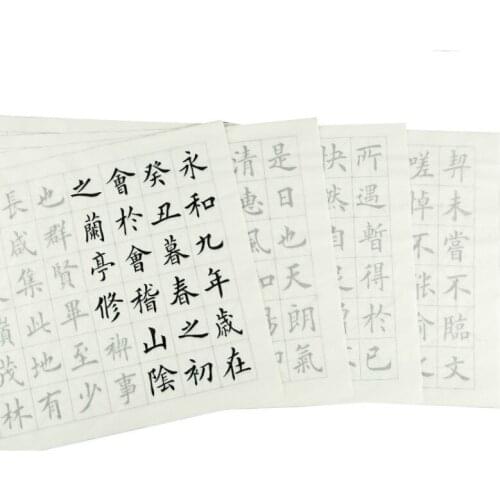 永和九年歲在
癸丑暮春之初
會於會稽山陰
之蘭亭修禊事
也群賢畢至少
長咸集此地有
嶺茂林
是日也天朗氣
清惠風
所遇暫得於已
快然自
契未嘗不臨文
嗟悼不能喻之